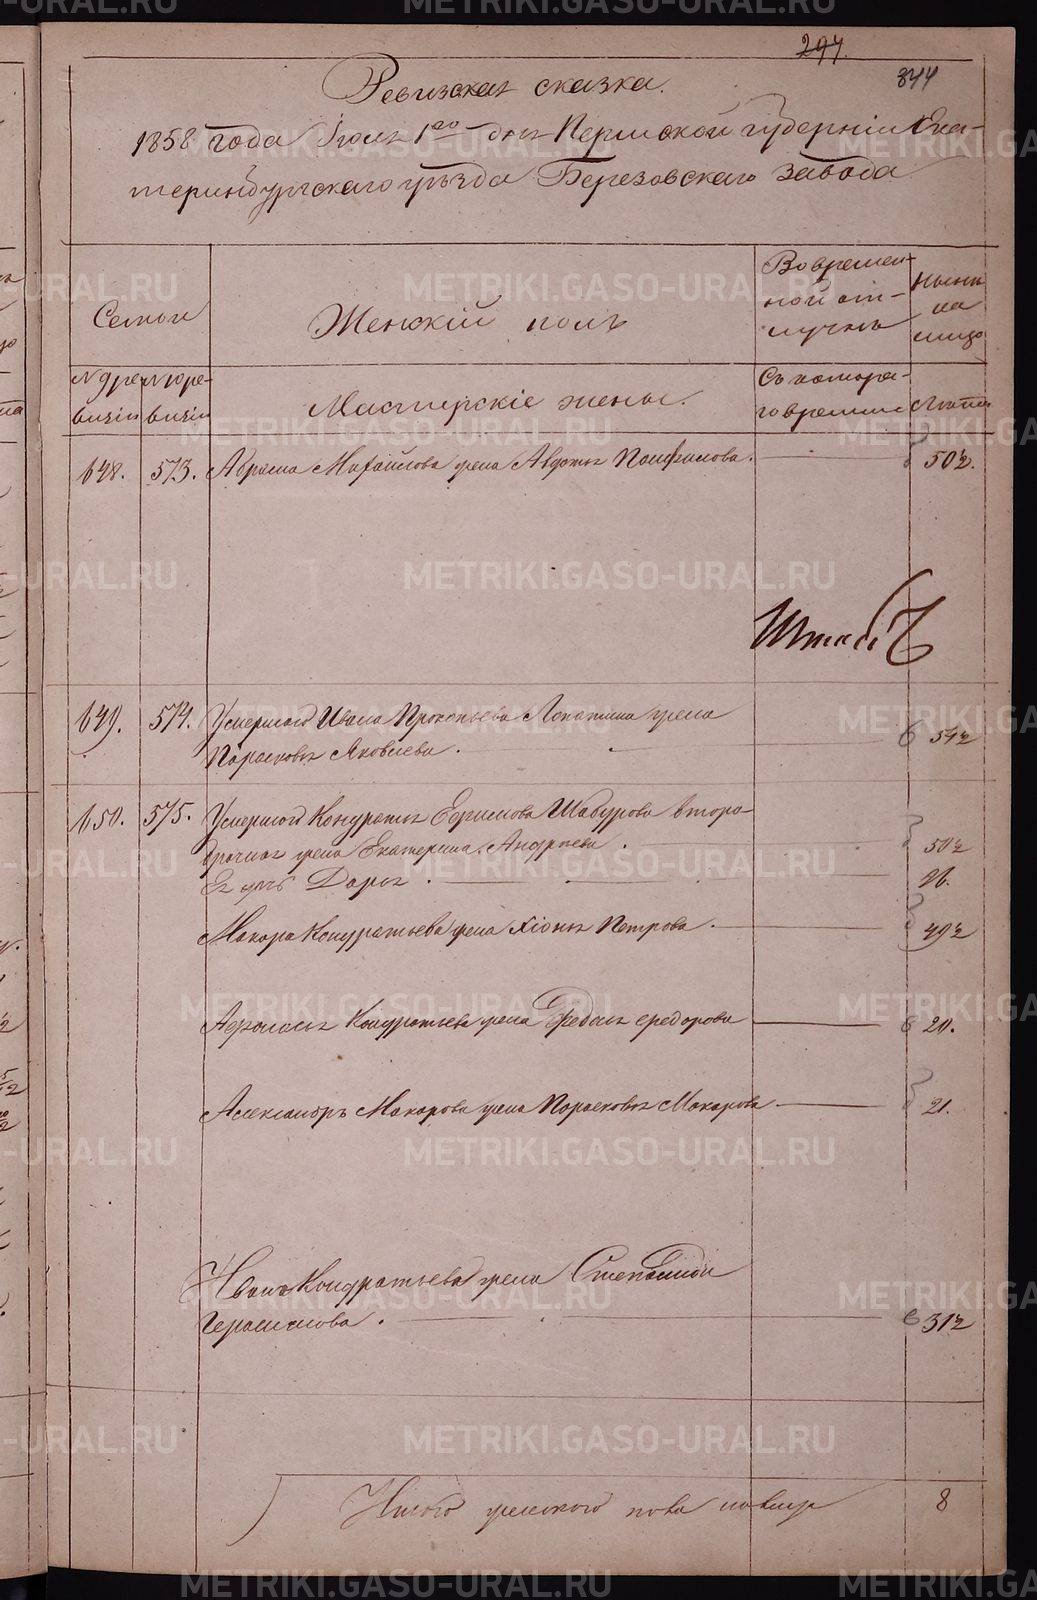 294.
844
Ревизская сказка.
1858 года Іюня 1го дня Пермской губерніи Ека-
теринбургскаго уѣзда Березовскаго завода
Семьи
Женскій полъ
Во времен-
ной от-
лучкѣ
Нынѣ
на
лицо
№ по ре-
визіи
Мастерскіе жены.
Съ котора-
го времени
Лѣта
648. 573. Абрама Михайлова жена Авдотья Панфилова. 50½.
Штабъ
649. 574. Умершаго Ивана Прокопьева Лопатина жена
Парасковья Яковлева. 54½
650. 575. Умершаго Кондратья Ефимова Шабурова второ-
брачная жена Екатерина Андреева. 50½
Ея дочь Дарья. 26.
Макара Кондратьева жена Хіонья Петрова. 49½
Афанасья Кондратьева жена Федосья Федорова 20.
Александръ Макарова жена Парасковья Макарова 21.
Ивана Кондратьева жена Степанида
Герасимова. 31½
Итого женского пола налицо 8
METRIKI.GASO-URAL.RU